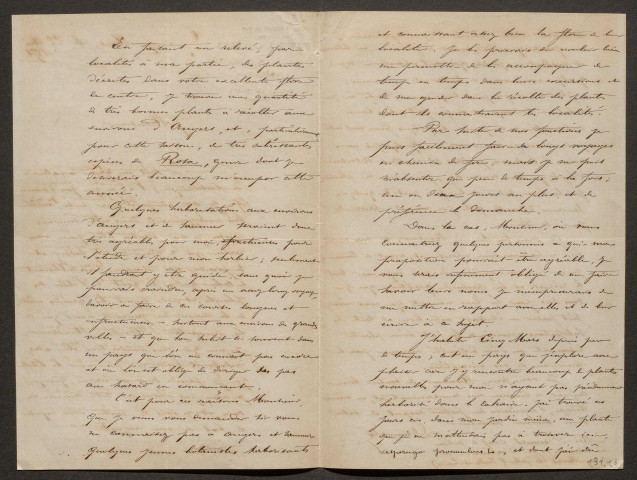 En faisant un relevé, par
localités à ma portée, des plantes
décrites dans votre excellente flore
du centre, j'y trouve une quantité
de très bonnes plantes à récolter aux
environs d'Angers, et, particulièrement
pour cette raison, de très intéressantes
espèces de Rosa, genre dont je
désirerais beaucoup m'occuper cette
année.
Quelques herborisations aux environs
d'Angers et de Saumur seraient donc
très agréables pour moi, fructueuses pour
l'étude et pour mon herbier; seulement
il faudrait y être guidé, sans quoi je
pourrais m'exposer, après un assez long voyage,
à faire de ces courses longues et
infructueuses - surtout aux environs de grandes
villes - et que l'on subit si souvent dans
un pays que l'on ne connaît pas encore
et où l'on est obligé de diriger ses pas
au hasard en commençant.
C'est pour ces raisons Monsieur,
que je viens vous demander si vous
ne connaissez pas à Angers et Saumur
quelques jeunes botanistes herborisants
et connaissant assez bien la flore de leur
localité. Je les prierais de vouloir bien
me permettre de les accompagner de
temps en temps dans leurs excursions et
de me guider dans la récolte des plantes
dont ils connaîtraient les localités.
Par suite de mes fonctions je
puis facilement faire de longs voyages
en chemin de fer; mais je ne puis
m'absenter que peu de temps à la fois,
un ou deux jours au plus et de
préférence le dimanche.
Dans le cas, Monsieur, où vous
connaîtriez quelques personnes à qui ma
proposition pourrait être agréable, je
vous serais infiniment obligé de me faire
savoir leurs noms; je m'empresserais de
me mettre en rapport avec elles et de leur
écrire à ce sujet.
J'habite Cinq Mars depuis peu
de temps; c'est un pays que j'explore avec
plaisir car j'y rencontre beaucoup de plantes
nouvelles pour moi n'ayant pas précédemment
herborisé dans le calcaire. J'ai trouvé ces
jours-ci, dans mon jardin même, une plante
que je ne m'attendais pas à trouver ici,
asperugo procumbens L., et dont j'ai dû